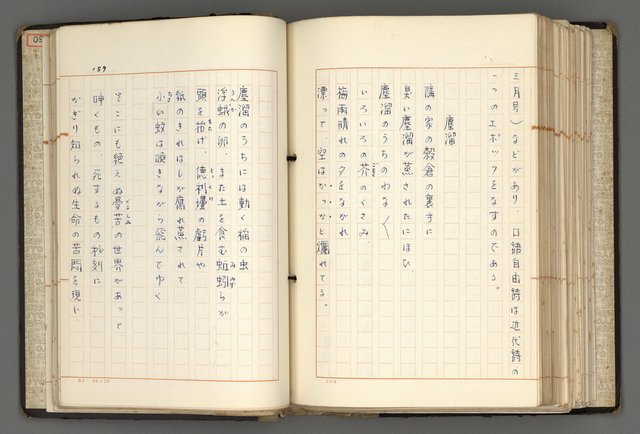 三月号）などがあり 口語自由詩は近代詩の
一つのエポックをなすのである。
塵溜
隣の家の穀倉の裏手に
臭い塵溜が蒸されたにほひ
塵溜のうちのわな〱
いろいろの芥のくさみ
梅雨晴れの夕をながれ
漂って 空はかっかと爛れてる。
159
塵溜のうちには動く稲の虫
浮蛾の卵 また土を食む蚯蚓らが
頭を抬げ、徳利壜の虧片や
紙のきれはしが腐れ蒸されて
小い蚊は喚きながら飛んでゆく
そこにも絶えぬ憂苦の世界があって
呻くもの、死するもの 秒刻に
かぎり知られぬ生命の苦悶を現じ